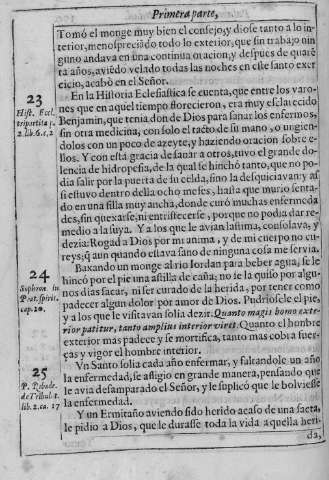 Primera parte,
Tomó el monge muy bien el consejo, y diose tanto a lo in-
terior, menospreciãdo todo lo exterior, que sin trabajo nin
guno andava en una continua oracion, y despues de quarẽ
ta años, aviẽdo velado todas las noches en este santo exer
cicio, acabò en el Señor.
23
Hist. Eccl.
tripartita p.
2. lib. 6. c. 2
En la Historia Eclesiastica se cuenta, que entre los varo-
nes que en aquel tiempo florecieron, era muy esclarecido
Benjamin, que tenia don de Dios para sanar los enfermos,
sin otra medicina, con solo el tacto de su mano, o ungien-
dolos con un poco de azeyte, y haziendo oracion sobre e-
llos. Y con esta gracia de sanar a otros, tuvo el grande do-
lencia de hidropesia, de la qual se hinchò tanto, que no po-
dia salir por la puerta de su celda, sino la desquiciavan: y as
si estuvo dentro della ocho meses, hasta que murio senta-
do en una silla muy ancha, donde curó muchas enfermeda
des, sin quexarse, ni entristecerse, porque no podia dar re-
medio a la suya. Y a los que le avian lastima, consolava, y
dezia: Rogad a Dios por mi anima, y de mi cuerpo no cu-
reys; q̃ aun quando estava sano de ninguna cosa me servia.
24
Sophron. in
Prat. spirit.
cap. 10.
Baxando un monge al rio Iordan para beber agua, se le
hincó por el pie una astilla de caña; no se la quiso por algu-
nos dias sacar, ni ser curado de la herida, por tener como
padecer algun dolor por amor de Dios. Pudriosele el pie,
y a los que le visitavan solia dezir. Quanto magis homo exte-
rior patitur, tanto amplius interior viret. Quanto el hombre
exterior mas padece y se mortifica, tanto mas cobra fuer-
ças y vigor el hombre interior.
25
P. Ribade.
de Tribul. l.
lib. 2. ca. 17
Un Santo solia cada año enfermar, y faltandole un año
la enfermedad, se afligio en grande manera, pensando que
le avia desamparado el Señor, y le suplicó que le bolviesse
la enfermedad.
Y un Ermitaño aviendo sido herido acaso de una saeta,
le pidio a Dios, que le durasse toda la vida aquella heri-
da,